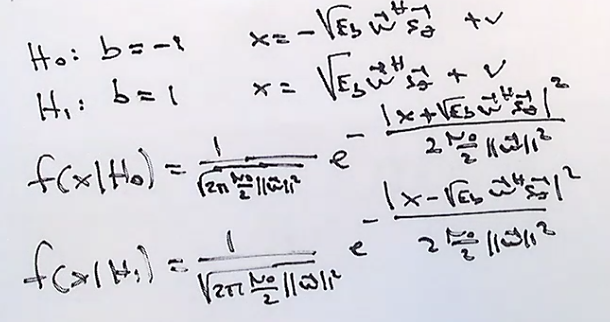 H₀: b = -1 x = -√E_b w⃗^H s⃗_θ + v
H₁: b = 1 x = √E_b w⃗^H s⃗_θ + v
f(x|H₀) = 1/√(2π N₀/2 ||w⃗||²) e^(- |x + √E_b w⃗^H s⃗_θ|² / (2 N₀/2 ||w⃗||²))
f(x|H₁) = 1/√(2π N₀/2 ||w⃗||²) e^(- |x - √E_b w⃗^H s⃗_θ|² / (2 N₀/2 ||w⃗||²))